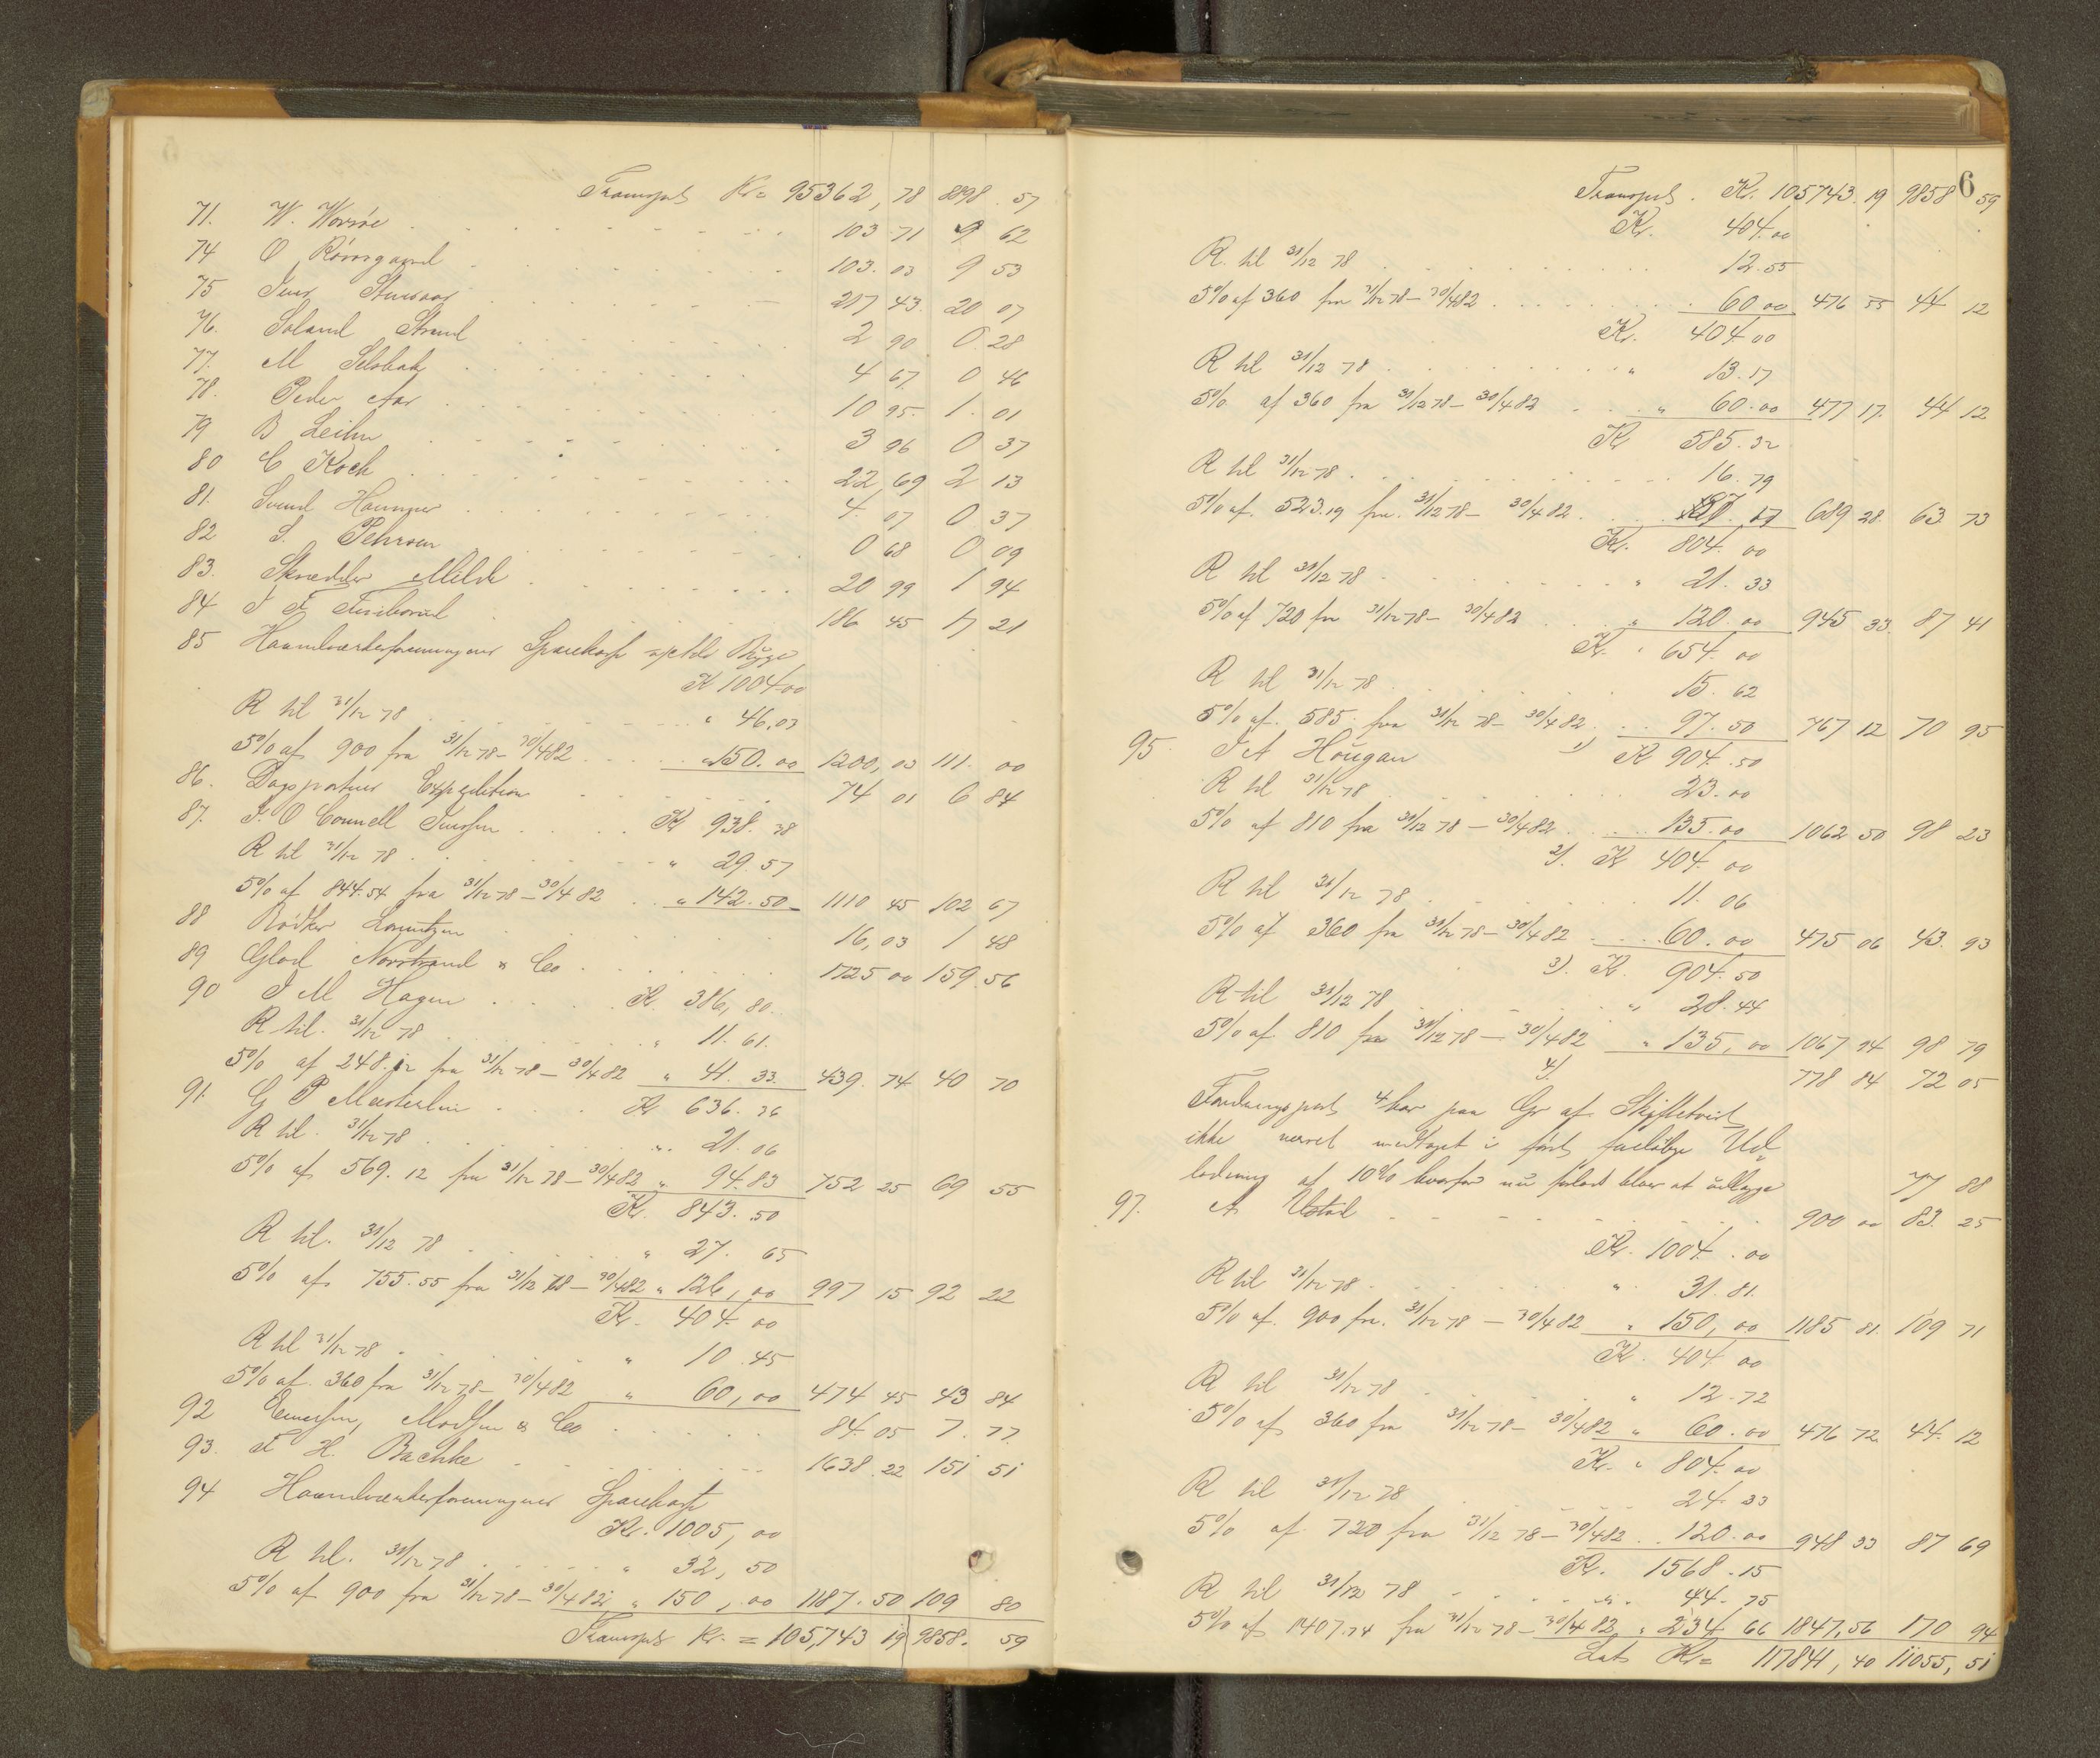 Transport Kr = 95362,78 8898.57
71. W. Worsøe 103 71 9 62
74 O Rövisgaard 103.03 9 53
75 Jens 217 43 20 07
76. Soland Strand 2 90 0.28
77. M Selsbak 4 67. 0 46
78. Peder Aas 10 95. 1.01
79 B Leihn 3 96 0 37
80 C Koch 22 69 2 13
81. Svend 4.07 0.37
82 S. Pehrson 0 68 0 09
83. Skrædder Milde 20 99 1 94
84 186 45 17 21
85 Haandværkerforeningens Sparekasse
K 1004.00
R til 31/12 78 " 46.03
5% af 900 fra 31/12 78 – 30/4 82 " 150.00 1200,03 111.00
86. Dagspostens Expedition 74 01 6 84
87. J. O Connell Kr 938.38
R til 31/12 78 " 29.57
5% af 844.54 fra 31/12 78 – 30/4 82 " 142.50 1110 45 102 67
88 Bödker 16,03 1 48
89 Glad Norstrand & Co 1725 00 159.56
90 J M Hagen Kr. 386,80.
R til. 31/12 78 " 11.61.
5% af 248. fra 31/12 78 – 30/4 82 " 41.33. 439.74 40 70
91. G P Kr 636.36
R til. 31/12 78 ". 21.06
5% af 569.12 fra 31/12 78 – 30/4 82 " 94.83 752 25 69 55
Kr. 843.50
R til. 31/12 78 " 27.65
5% af 755.55 fra 31/12 78 – 30/4 82 " 126,00 997 15 92 22
Kr. 404.00
R til 31/12 78 " 10.45
5% af. 360 fra 31/12 78 – 30/4 82 " 60,00 474 45 43 84
92 Madsen & Co 84.05 7.77.
93. F H. Bachke 1638.22 151 51
94 Haandværkerforeningens Sparekasse
Kr. 1005,00
R til. 31/12 78 " 32,50
5% af 900 fra 31/12 78 – 30/4 82 " 150,00 1187.50 109 80
Transport Kr. = 105,743 19 9858.59
6
Transport. Kr. 105743.19 9858 59
Kr. 404.00
R. til 31/12 78 12.55
5% af 360 fra 31/12 78 – 30/4 82 60 00 476 55 44 12
Kr. 404 00
R til 31/12 78 " 13.17
5% af 360 fra 31/12 78 – 30/4 82 " 60.00 477 17. 44 12
Kr 585.32
R til 31/12 78 16.79
5% af. 523.19 fra. 31/12 78 – 30/4 82 87.17 689 28. 63 73
Kr. 804.00
R til 31/12 78 " 21.33
5% af 720 fra 31/12 78 – 30/4 82 " 120.00 945 33. 87 41
Kr. " 654.00
R til 31/12 78 15.62
5% af. 585 fra 31/12 78 – 30/4 82 97.50 767 12 70 95
95 J A Hougan 1) K 904.50
R til 31/12 78 23.00
5% af 810 fra 31/12 78 – 30/4 82 135.00 1062 50 98 23
2). Kr 404.00
R til 31/12 78 11.06
5% af 360 fra 31/12 78 – 30/4 82 60.00 475 06 43.93
3). Kr. 904.50
R til 31/12 78 " 28.44
5% af. 810 fra 31/12 78 – 30/4 82 " 135,00 1067 94 98 79
4) 778 84 72 05
Fordringspost 4 har paa Gr af. Skifteret
ikke været medtaget i først Ud
lodning af 10% hvorfor nu bliver at udlægge 77 88
97. A 900 00 83.25
Kr. 1004.00
R til 31/12 78 " 31.81.
5% af. 900 fra. 31/12 78 – 30/4 82 " 150,00 1185 81. 109 71
Kr. 404 00
R til 31/12 78 " 12.72
5% af 360 fra 31/12 78 – 30/4 82 " 60.00 476 72 44.12
Kr. " 804.00
R til 31/12 78 24.33
5% af 720 fra 31/12 78 – 30/4 82 120.00 948 33 87 69
Kr. 1568.15
R til 31/12 78 ". 44.75
5% af 1407.94 fra 31/12 78 – 30/4 82 " 234 66 1847,56 170 94
Lats Kr = 117841,40 11055,51